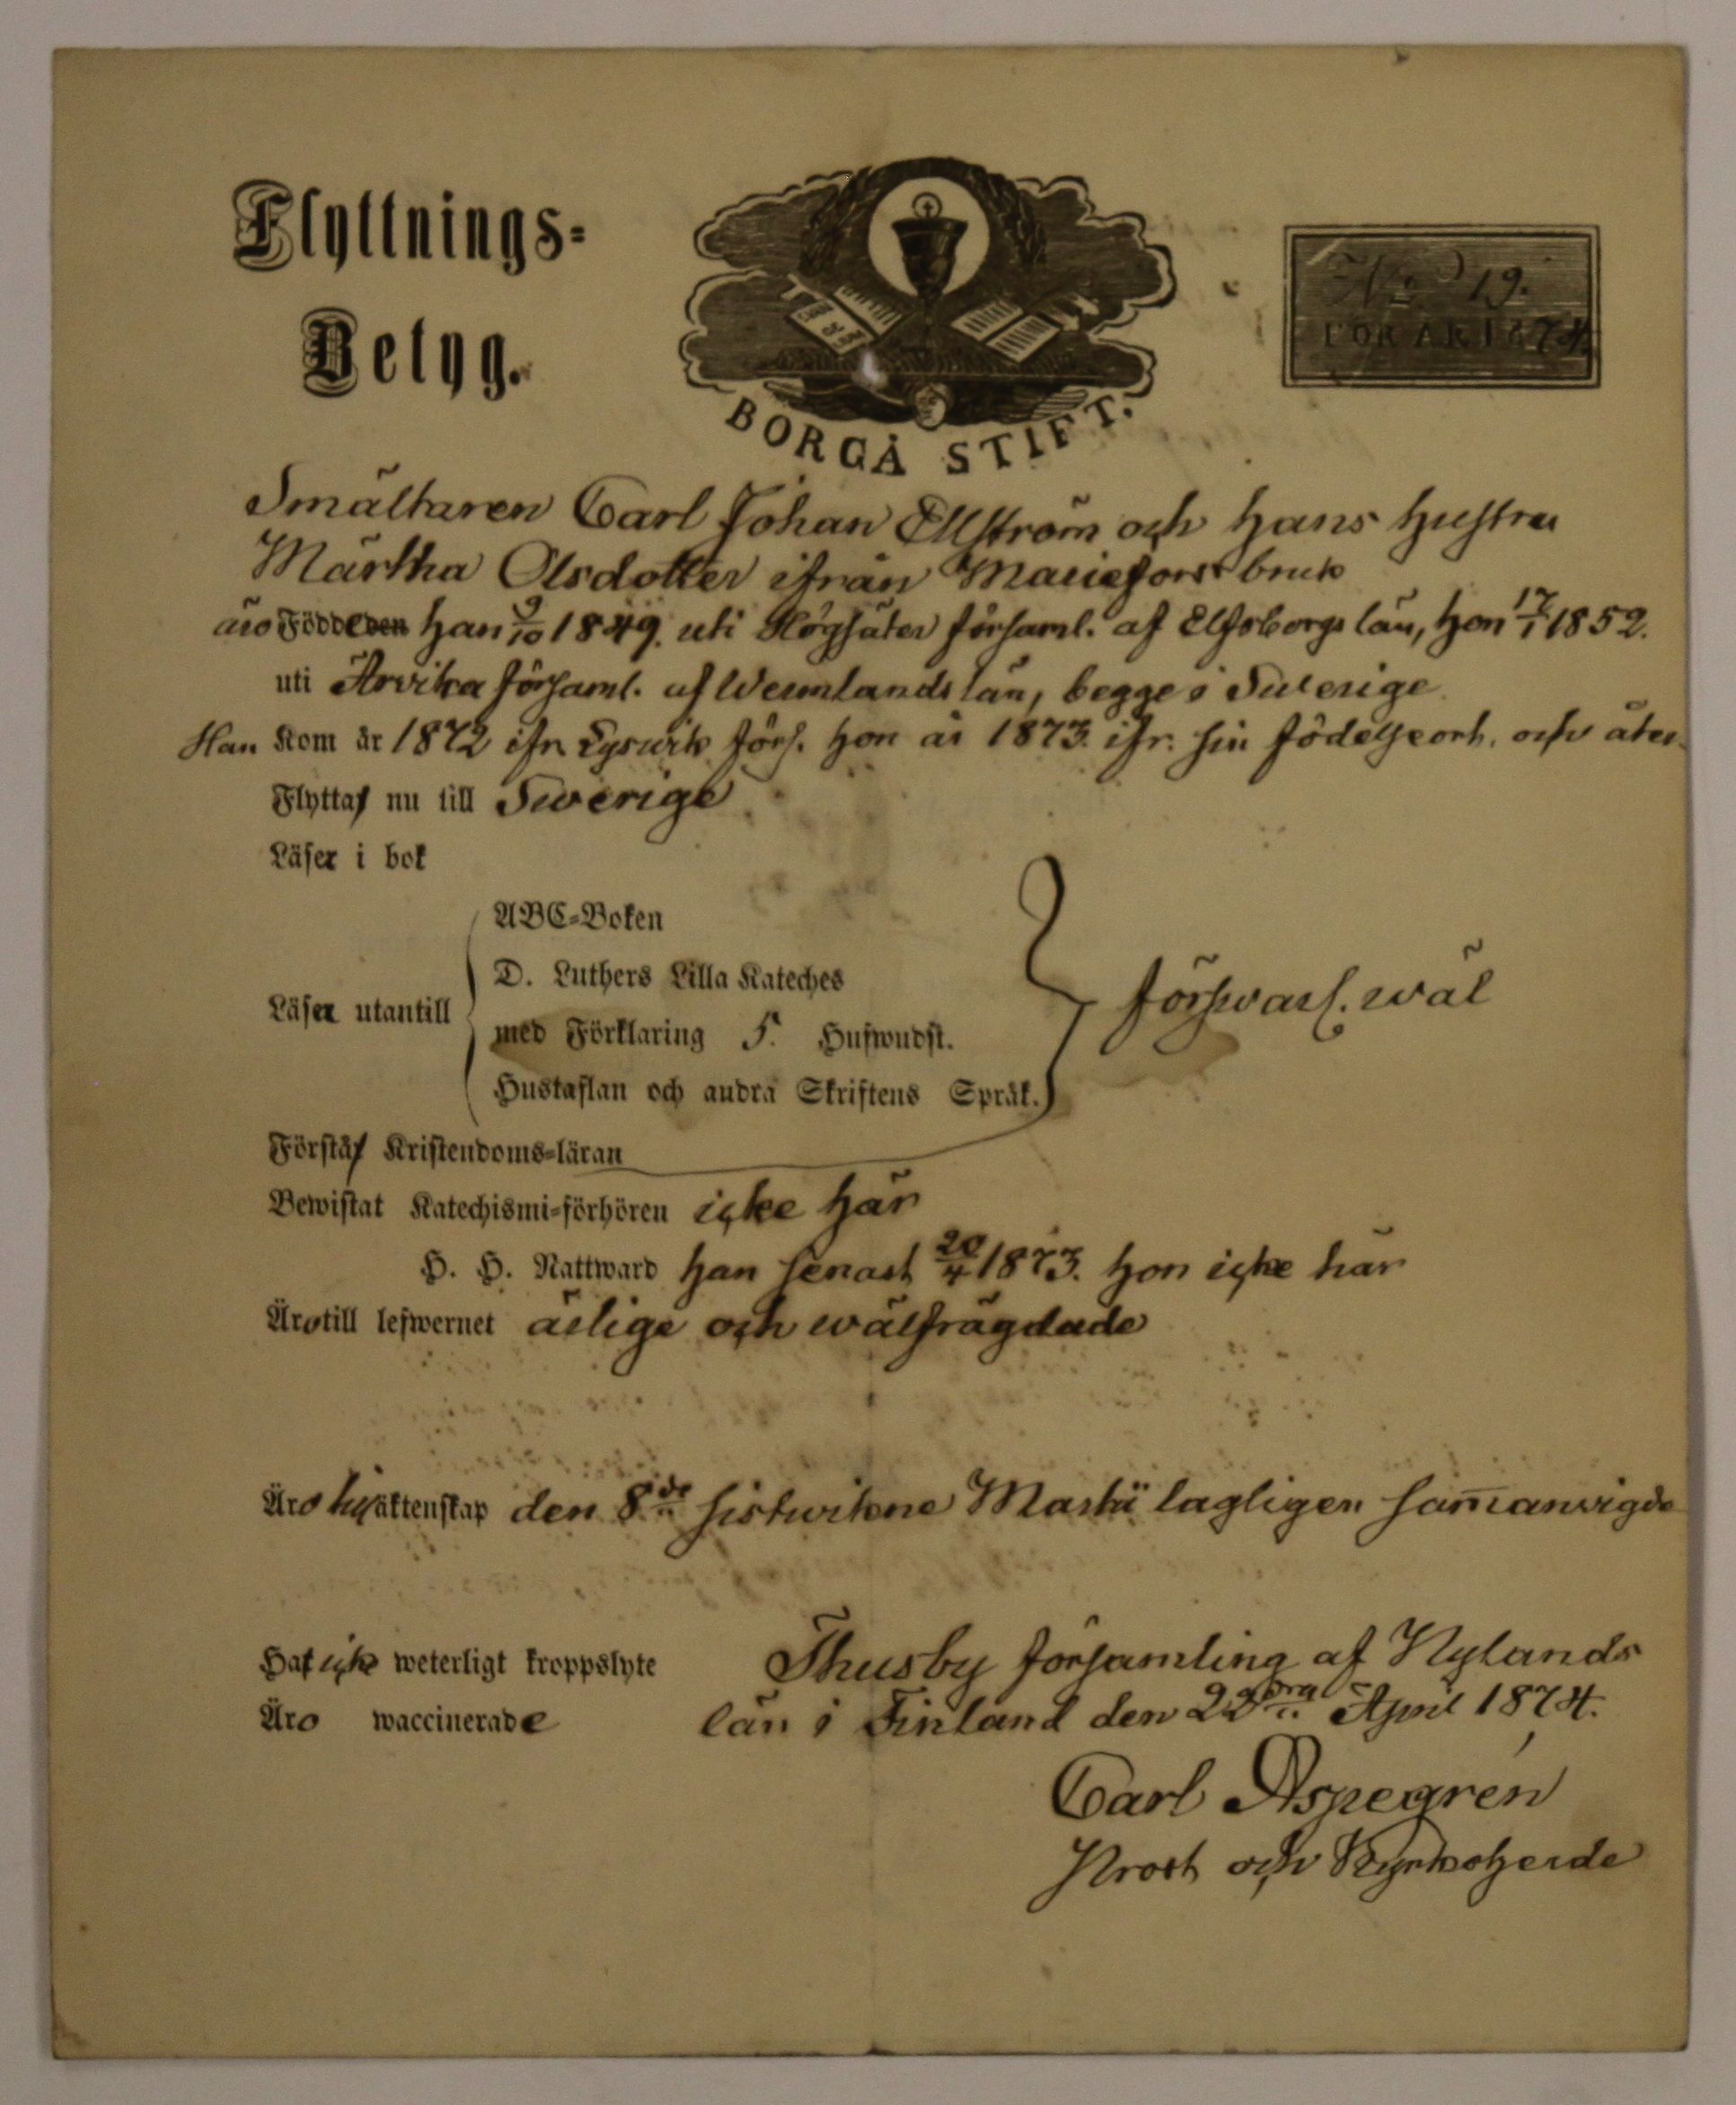 Flyttnings-
Betyg.
BORGÅ STIFT.
No 19.
FÖR ÅR 1874.
Smältaren Carl Johan Ellström och hans hustru
Märtha Olsdotter ifrån Mariefors bruk
äro Födde den han 9/10 1849. uti Högsäter församl. af Elfsborgs län, hon 17/1 1852.
uti Arvika församl. af Wermlands län, begge i Swerige
Han Kom år 1872 ifr. Lyswik förs. hon år 1873. ifr. sin födelseort, och åter-
Flyttaf nu till Swerige
Läser i bok
ABC-Boken
D. Luthers Lilla Kateches
Läser utantill
med Förklaring 5. Hufwudst.
Hustaflan och andra Skriftens Språk.
förswarl. wäl
Förstå Kristendoms-läran
Bewistat Katechismi-förhören icke här
H. H. Nattward han senast 20/4 1873. hon icke här
Äro till lefwernet ärlige och wälfrägdade
Äro äktenskap den 8de sistwikne Martii lagligen sam̄anvigde
Haf icke weterligt kroppslyte
Äro waccinerade
Thusby församling af Nylands
län i Finland den 22dra April 1874.
Carl Aspegrén
Prost och Kyrkoherde